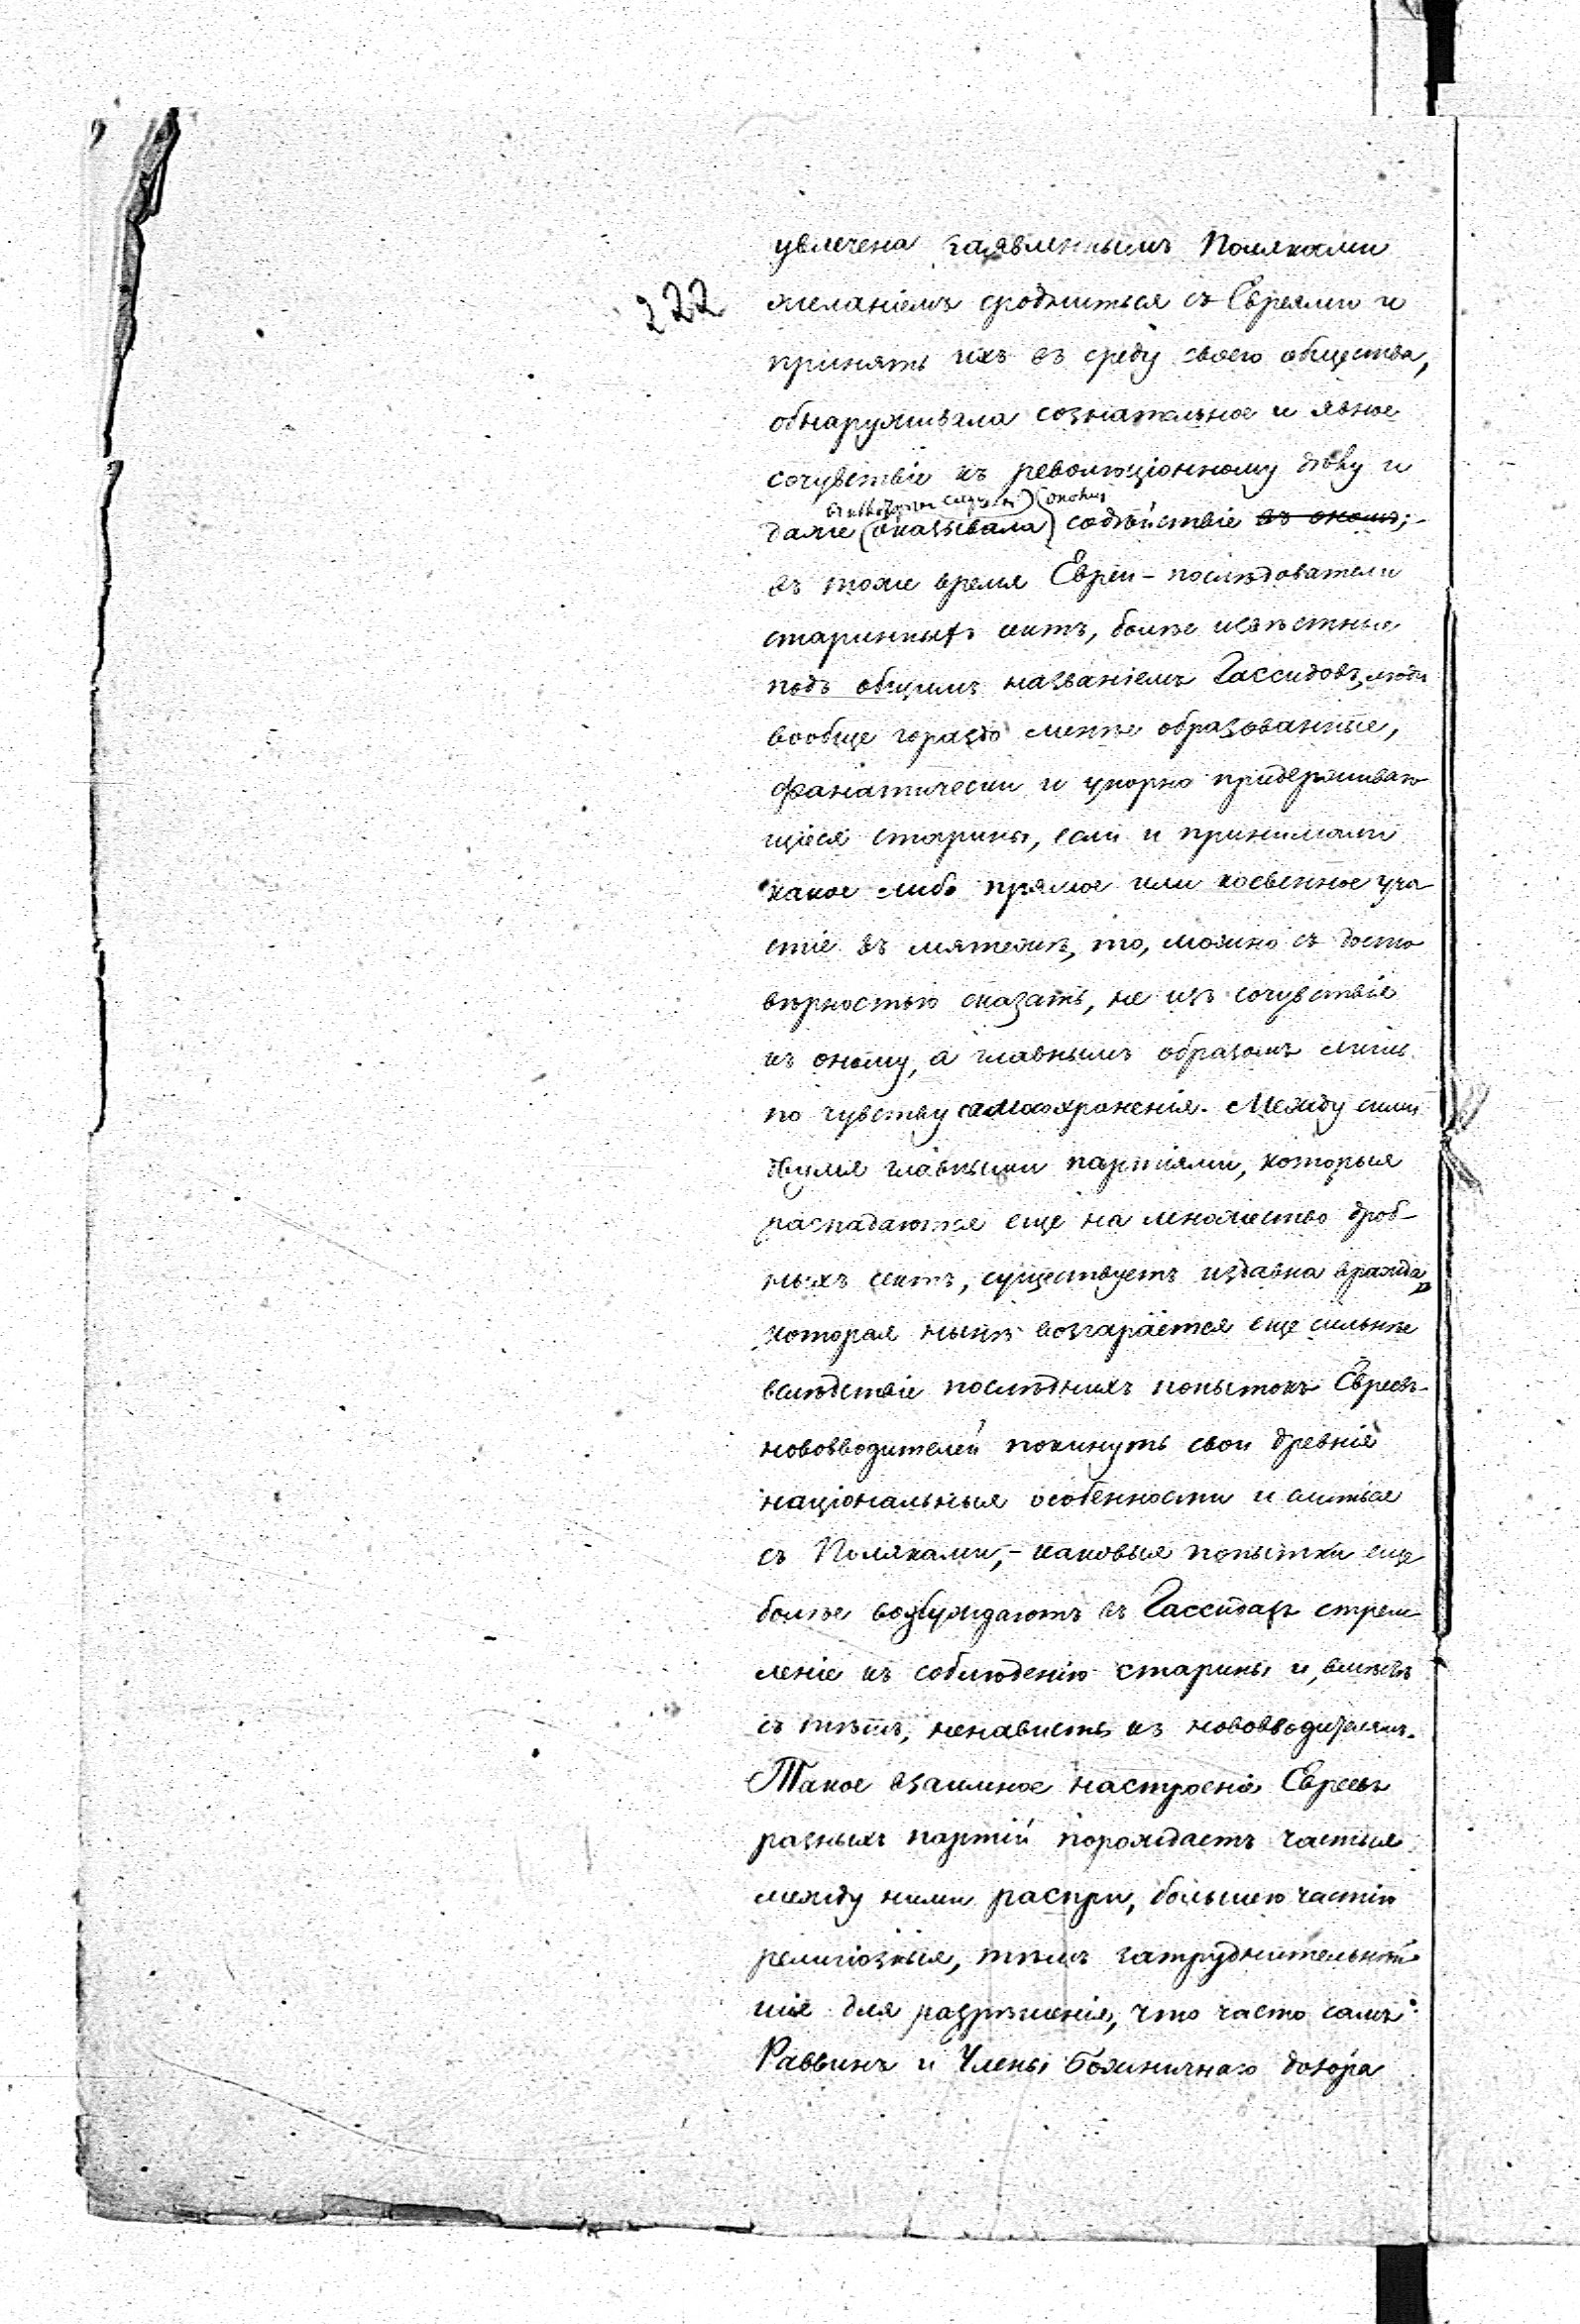 увлечена заявленнымъ Поляками
222
желаніемъ сродниться съ Евреями и
принять ихъ въ среду своего общества,
обнаруживала сознательное и явное
сочувствіе къ революціонному духу и
въ нѣкоторыхъ случаяхъ) (оному
даже (оказывала) содѣйствіе въ ономъ;-
въ тоже время Евреи-послѣдователи
старинныхъ сектъ, болѣе извѣстные
подъ общимъ названіемъ Гассидовъ, люди
вообще гораздо менѣе образованные,
фанатически и упорно придерживаю
щіеся старины, если и принимали
какое либо прямое или косвенное уча
стіе въ мятежѣ, то, можно съ досто
вѣрностью сказать, не изъ сочувствія
къ оному, а главнымъ образомъ лишь
по чувству самосохраненія. Между сими
двумя главными партіями, которыя
распадаются еще на множество дроб-
ныхъ сектъ, существуетъ издавна вражда,
которая нынѣ возгарается еще сильнѣе
вслѣдствіе послѣднихъ попытокъ Евреевъ-
нововводителей покинуть свои древнія
національныя особенности и слиться
съ Поляками,- каковыя попытки еще
болѣе возбуждаютъ въ Гассидахъ стрем
леніе къ соблюденію старины и, вмѣстѣ
съ тѣмъ, ненависть къ нововводителямъ.
Такое взаимное настроеніе Евреевъ
разныхъ партій порождаетъ частыя
между ними распри, большею частію
религіозныя, тѣмъ затруднительнѣй
шія для разрѣшенія, что часто самъ
Раввинъ и Члены Божничнаго дозора